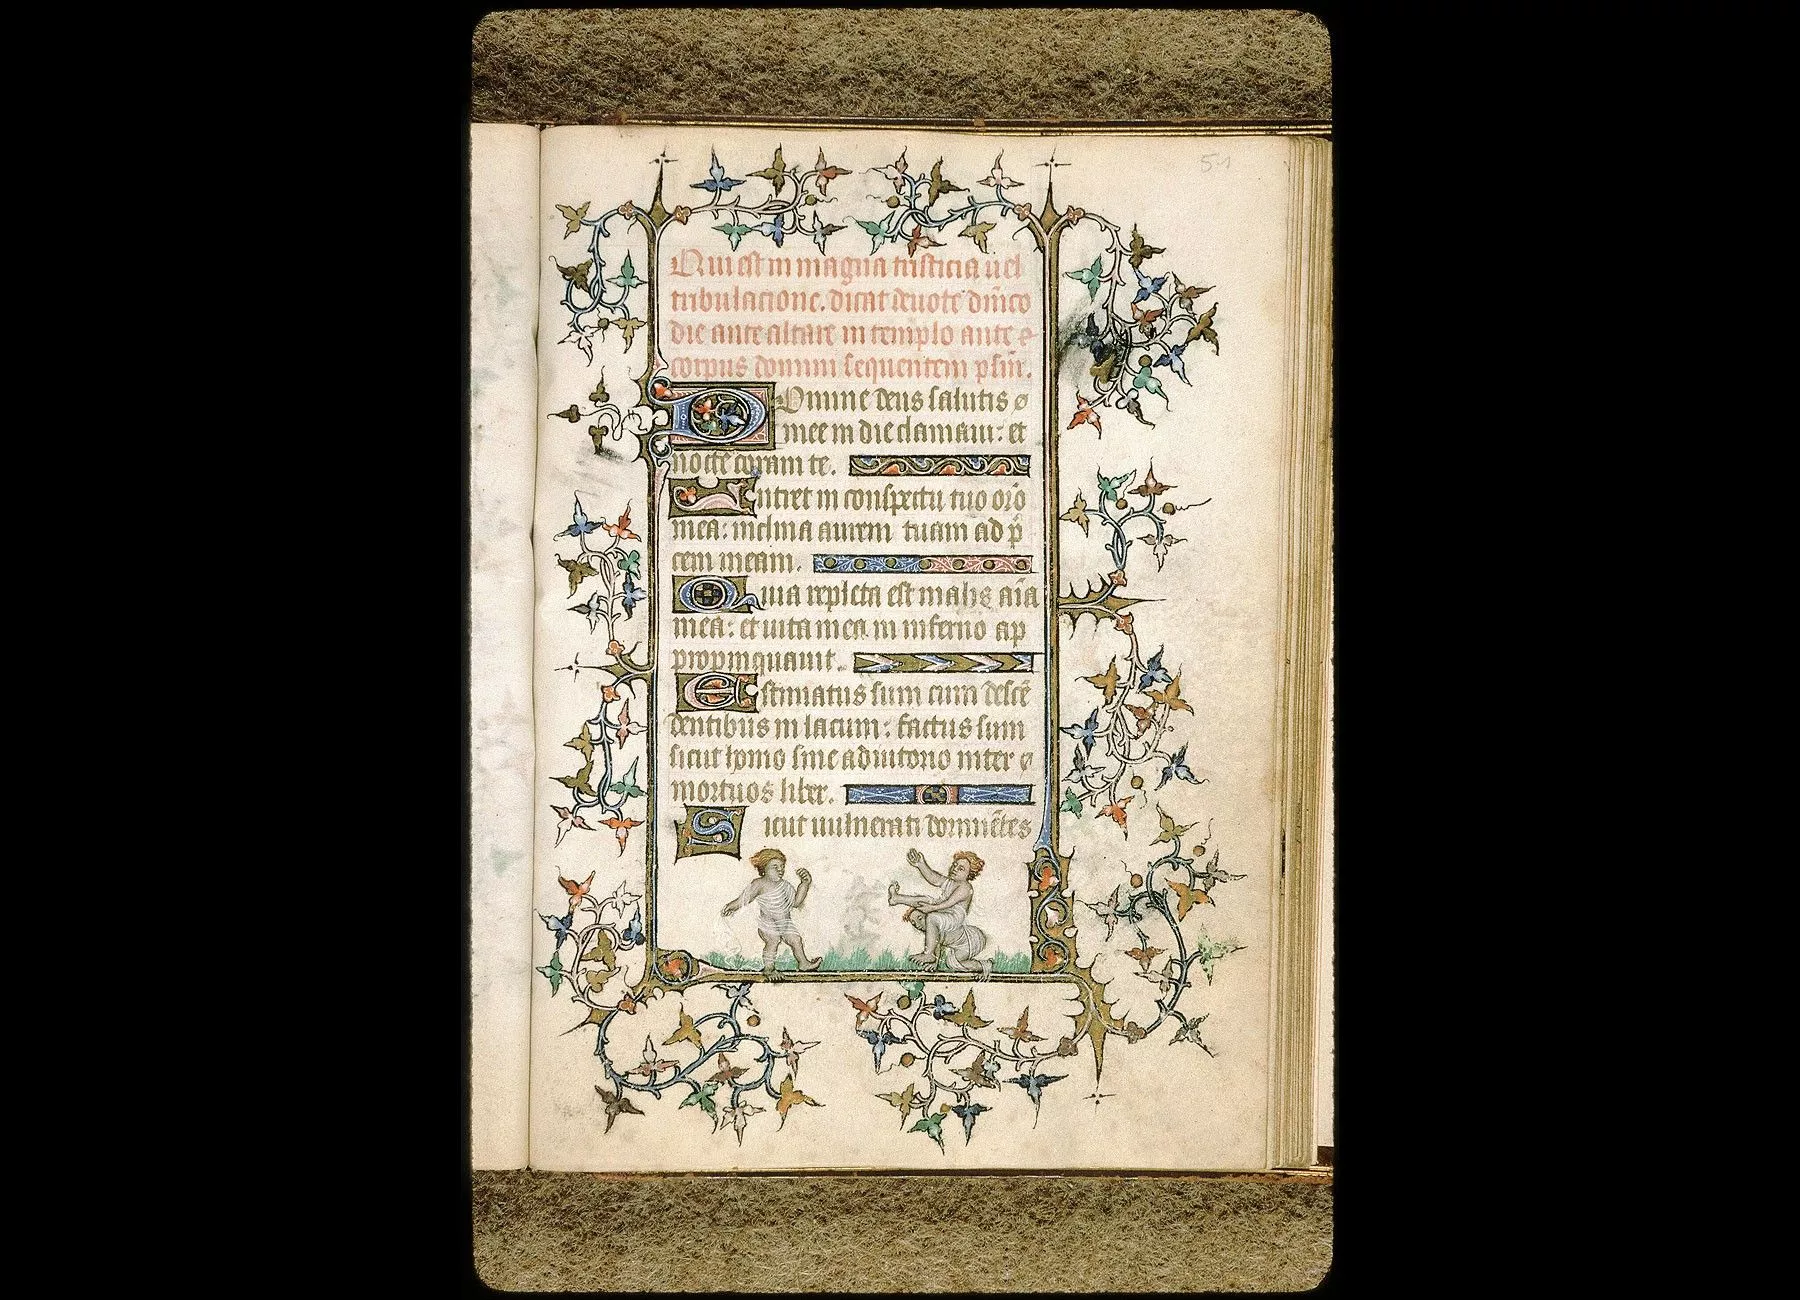 51
Qui est in magna tristicia uel
tribulacione. dicat deuote dñico
die ante altare in templo ante
corpus domini sequentem psl̃m.
Domine deus salutis
mee in die clamaui: et
nocte coram te.
Intret in conspectu tuo orõ
mea: inclina aurem tuam ad p̃
cem meam.
Quia repleta est malis aĩa
mea: et uita mea in inferno ap
propinquauit.
Estimatus sum cum descẽ
dentibus in lacum: factus sum
sicut homo sine adiutorio inter
mortuos liber.
Sicut uulnerati dormiẽtes